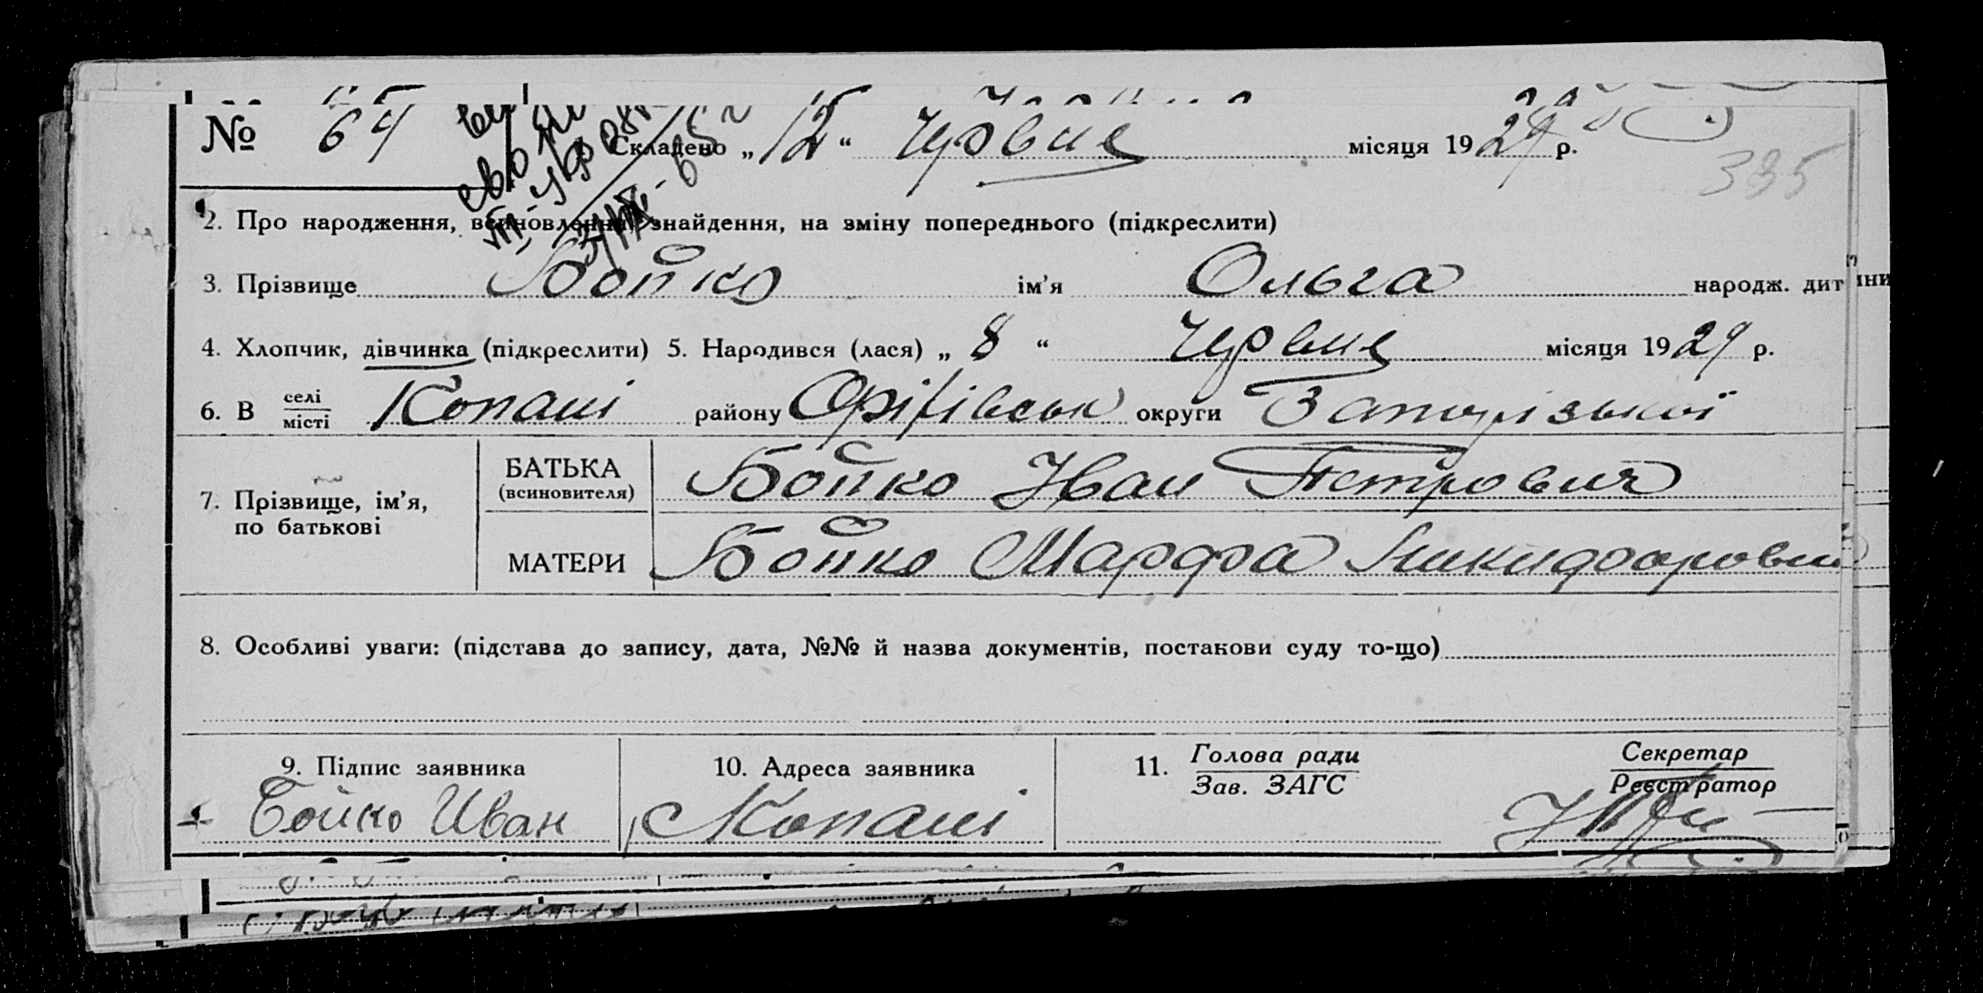 № 64 Складено „12“ Червня місяця 1929 р.
335
2. Про народження, всиновлення, знайдення, на зміну попереднього (підкреслити)
3. Прізвище Бойко ім'я Ольга народж. дитини
4. Хлопчик, дівчинка (підкреслити) 5. Народився (лася) „ 8 “ Червня місяця 1929 р.
6. В селі/місті Копані району Оріхівськ округи Запорізької
7. Прізвище, ім'я, по батькові
БАТЬКА (всиновителя) Бойко Иван Петрович
МАТЕРИ Бойко Марфа Никифоровна
8. Особливі уваги: (підстава до запису, дата, №№ й назва документів, постанови суду то-що)
9. Підпис заявника
Бойко Иван
10. Адреса заявника
Копані
11. Голова ради
Зав. ЗАГС
Секретар
Реєстратор